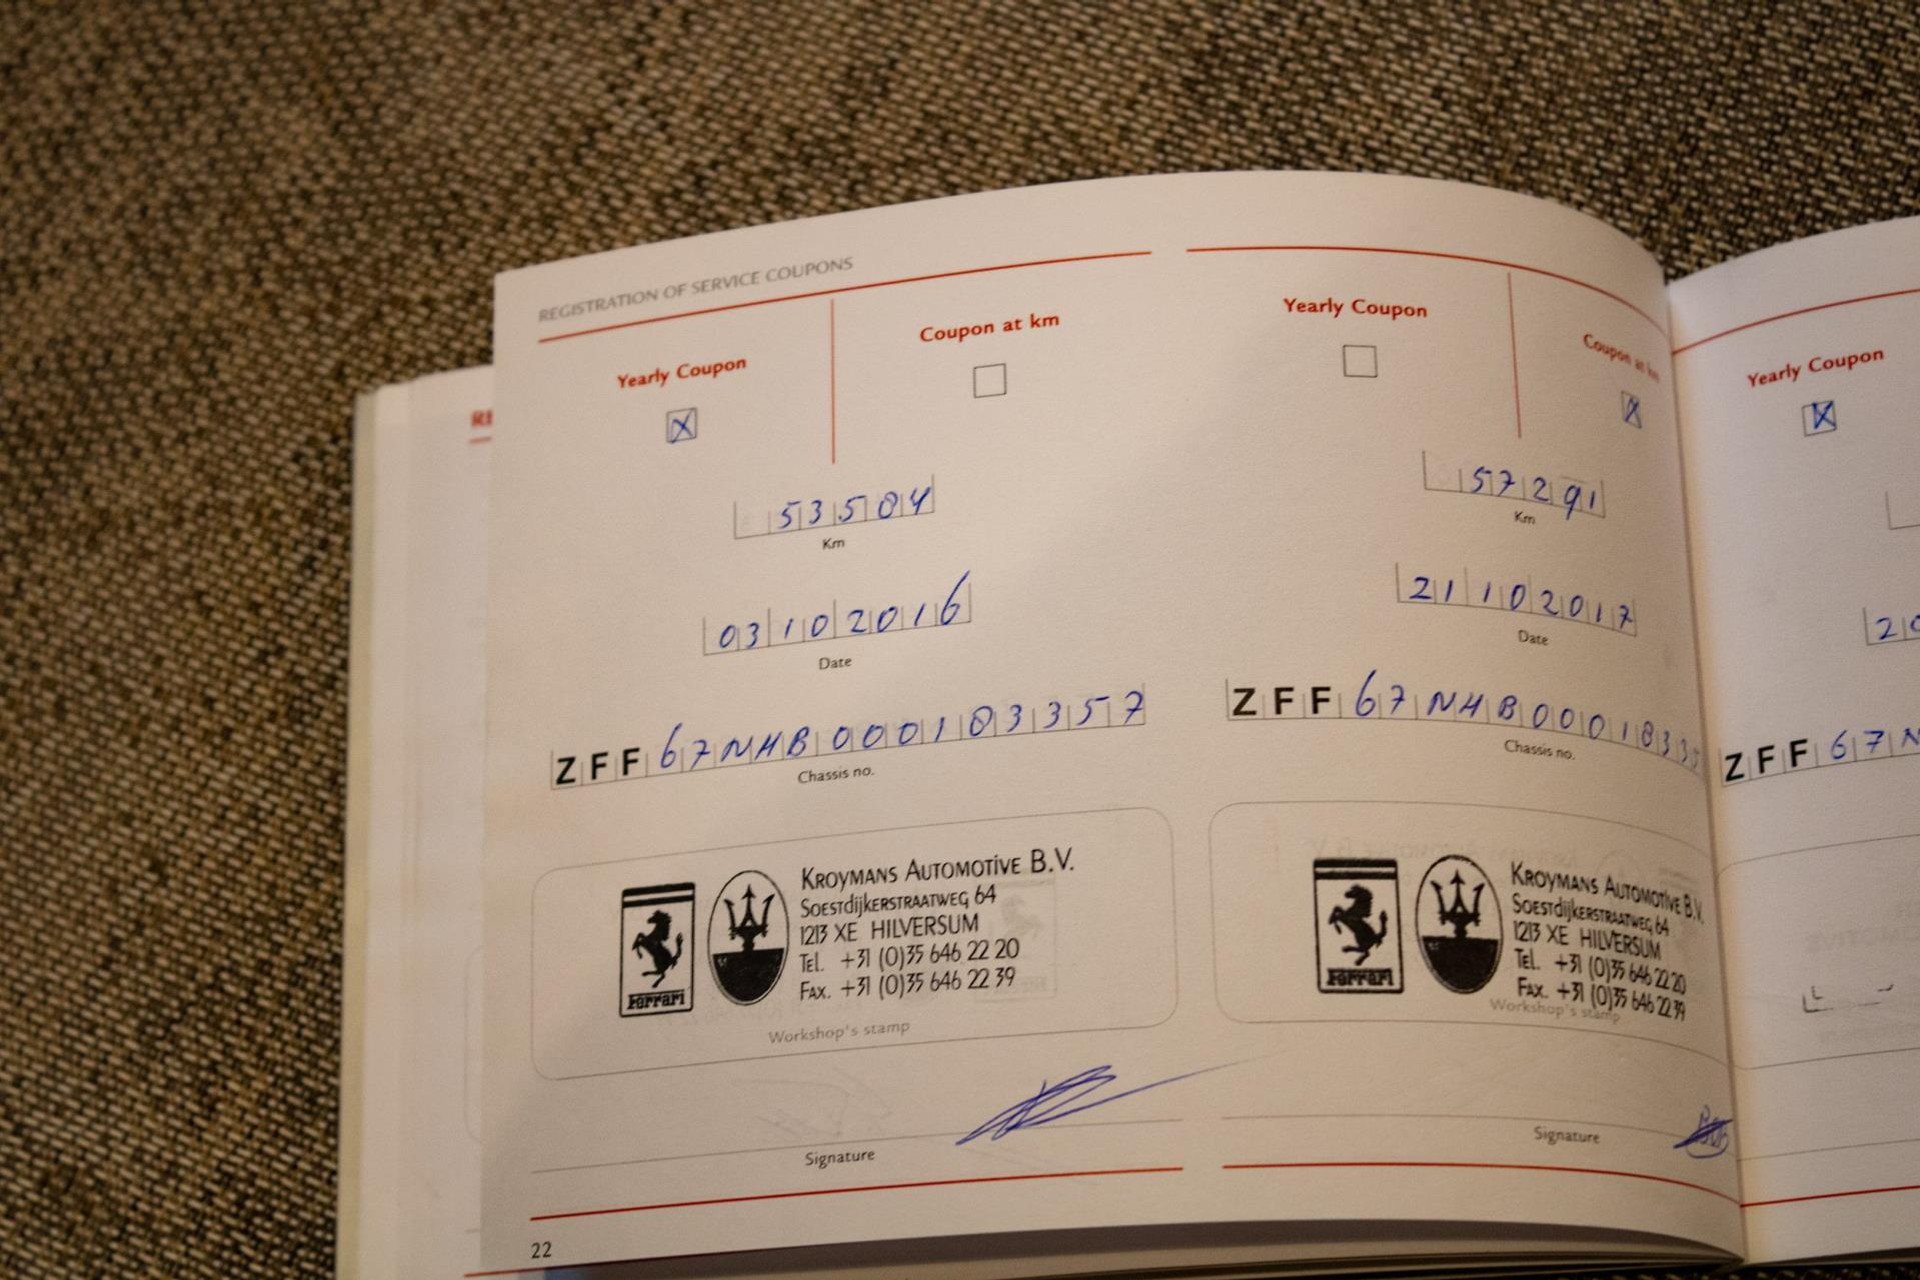 REGISTRATION OF SERVICE COUPONS
Yearly Coupon
Coupon at km
53584
Km
03102016
Date
ZFF67NHB000183357
Chassis no.
KROYMANS AUTOMOTIVE B.V.
SOESTDIJKERSTRAATWEG 64
1213 XE HILVERSUM
TEL. +31 (0)35 646 22 20
FAX. +31 (0)35 646 22 39
Ferrari
Workshop's stamp
Signature
22
Yearly Coupon
Coupon at km
57291
Km
21102017
Date
ZFF67NHB00018335
Chassis no.
KROYMANS AUTOMOTIVE B.V.
SOESTDIJKERSTRAATWEG 64
1213 XE HILVERSUM
TEL. +31 (0)35 646 22 20
FAX. +31 (0)35 646 22 39
Ferrari
Workshop's stamp
Signature
Yearly Coupon
20
ZFF67N